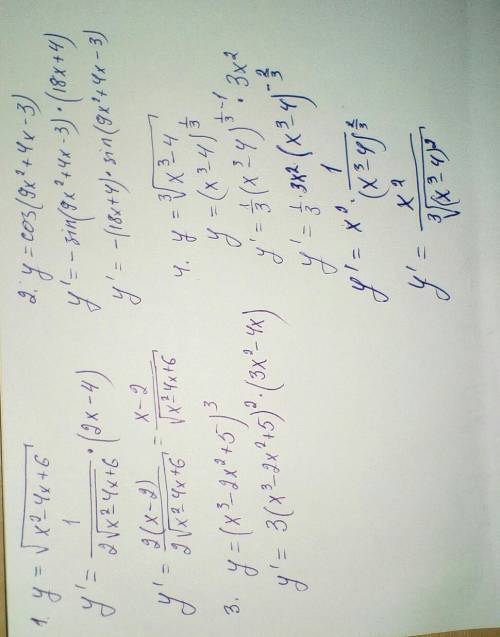 1. y = √(x²-4x+6)
y' = 1/(2√(x²-4x+6)) · (2x-4)
y' = 2(x-2)/(2√(x²-4x+6)) = (x-2)/√(x²-4x+6)
3. y = (x³-2x²+5)³
y' = 3(x³-2x²+5)² · (3x²-4x)
2. y = cos(9x²+4x-3)
y' = -sin(9x²+4x-3) · (18x+4)
y' = -(18x+4) · sin(9x²+4x-3)
4. y = ³√(x³-4)
y = (x³-4)^(1/3)
y' = 1/3 (x³-4)^(1/3-1) · 3x²
y' = 1/3 · 3x² (x³-4)^(-2/3)
y' = x² · 1/(x³-4)^(2/3)
y' = x²/³√((x³-4)²)